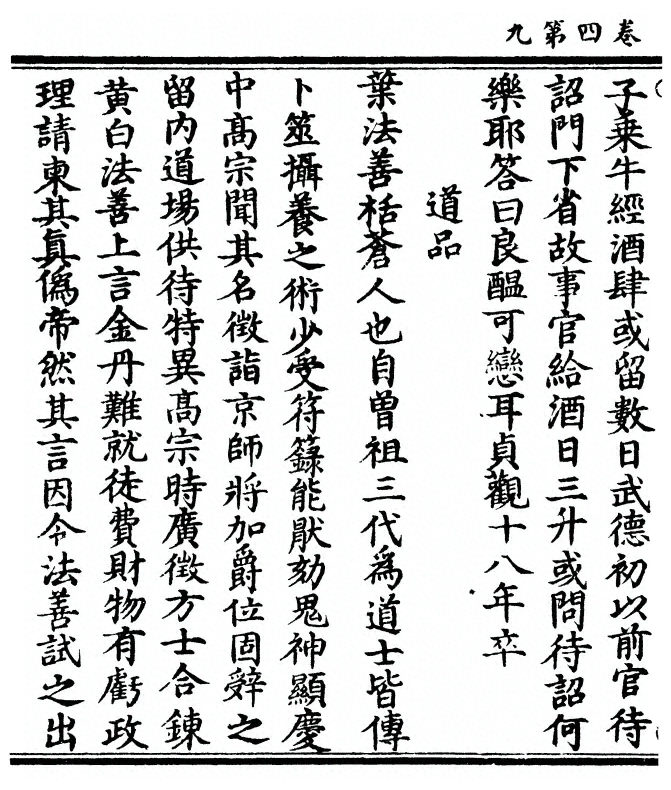 卷四第九
子乗牛經酒肆或留數日武德初以前官待
詔門下省故事官給酒日三升或問待詔何
樂耶答曰良醞可戀耳貞觀十八年卒
道品
葉法善栝蒼人也自曾祖三代爲道士皆傳
卜筮攝養之術少受符籙能厭劾鬼神顯慶
中高宗聞其名徵詣京師將加爵位固辤之
留内道場供待特異高宗時廣徵方士合鍊
黄白法善上言金丹難就徒費財物有虧政
理請柬其眞僞帝然其言因令法善試之出